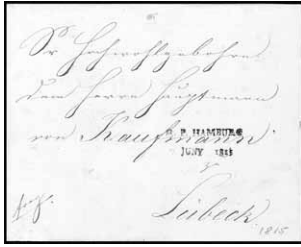 Sr Hochwohlgebohren
dem Herrn Hauptmann
von Kaufmann
P HAMBURG
JUNY
Lübeck
1815